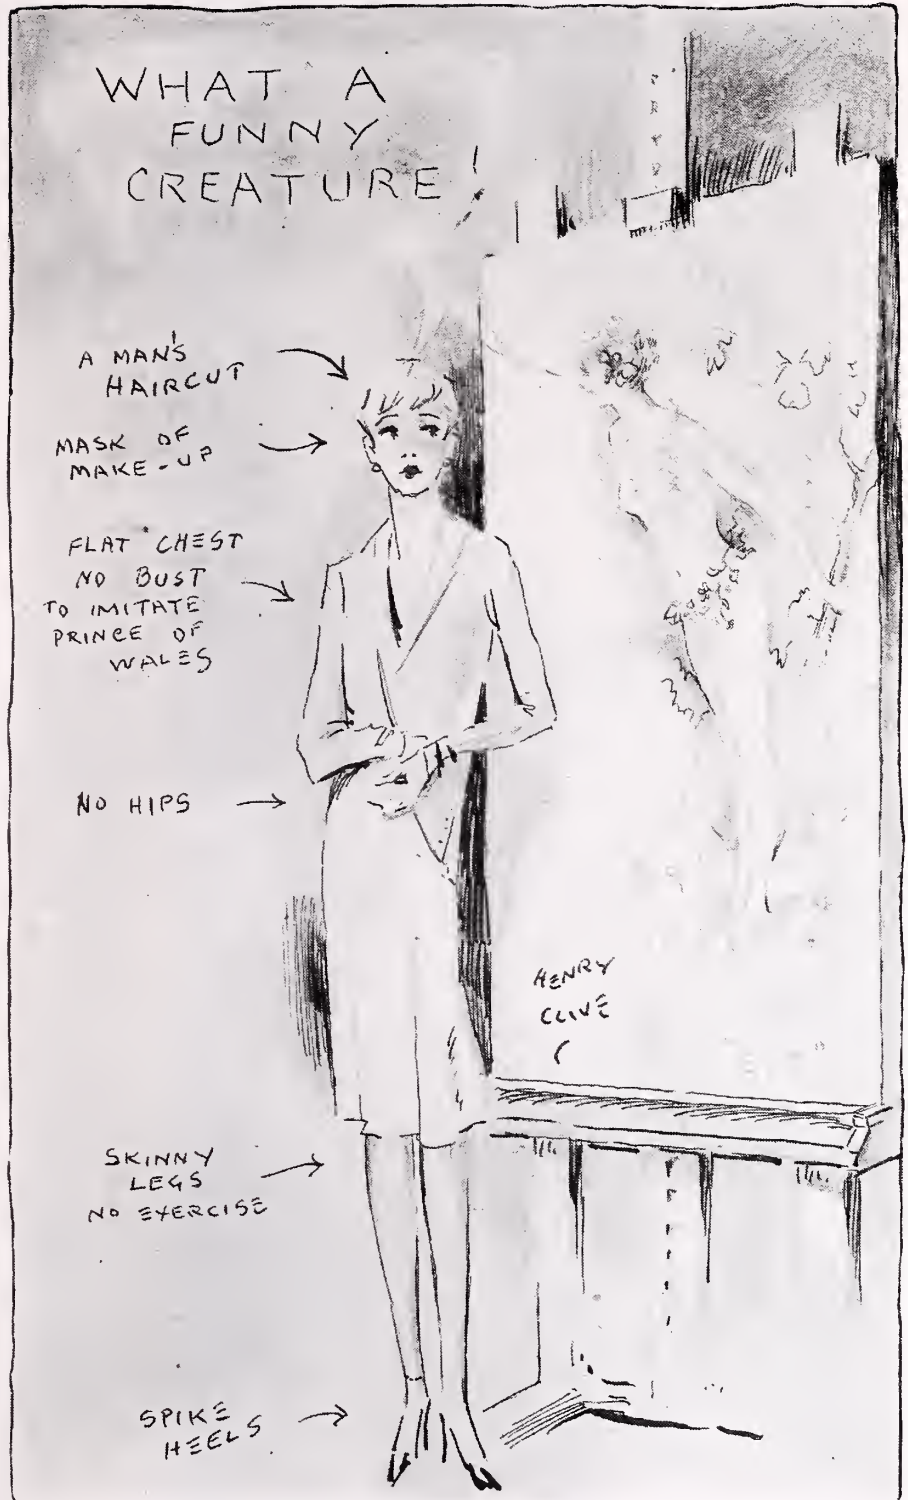 WHAT A
FUNNY
CREATURE!
A MAN'S
HAIRCUT
MASK OF
MAKE-UP
FLAT CHEST
NO BUST
TO IMITATE
PRINCE OF
WALES
NO HIPS
HENRY
CLIVE
SKINNY
LEGS
NO EXERCISE
SPIKE
HEELS